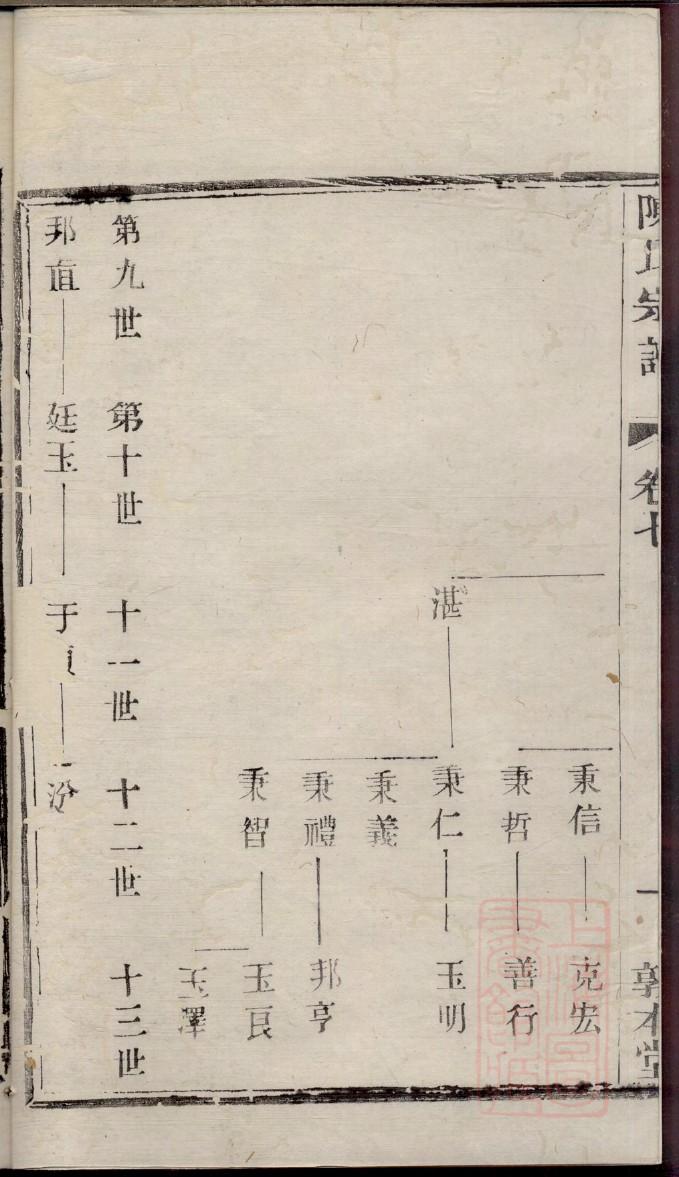 陳氏宗譜
卷七
一
敦本堂
秉信
克宏
秉哲
善行
湛
秉仁
玉明
秉義
秉禮
邦亨
秉智
玉良
玉澤
第九世
第十世
十一世
十二世
十三世
邦直
廷玉
于
汾